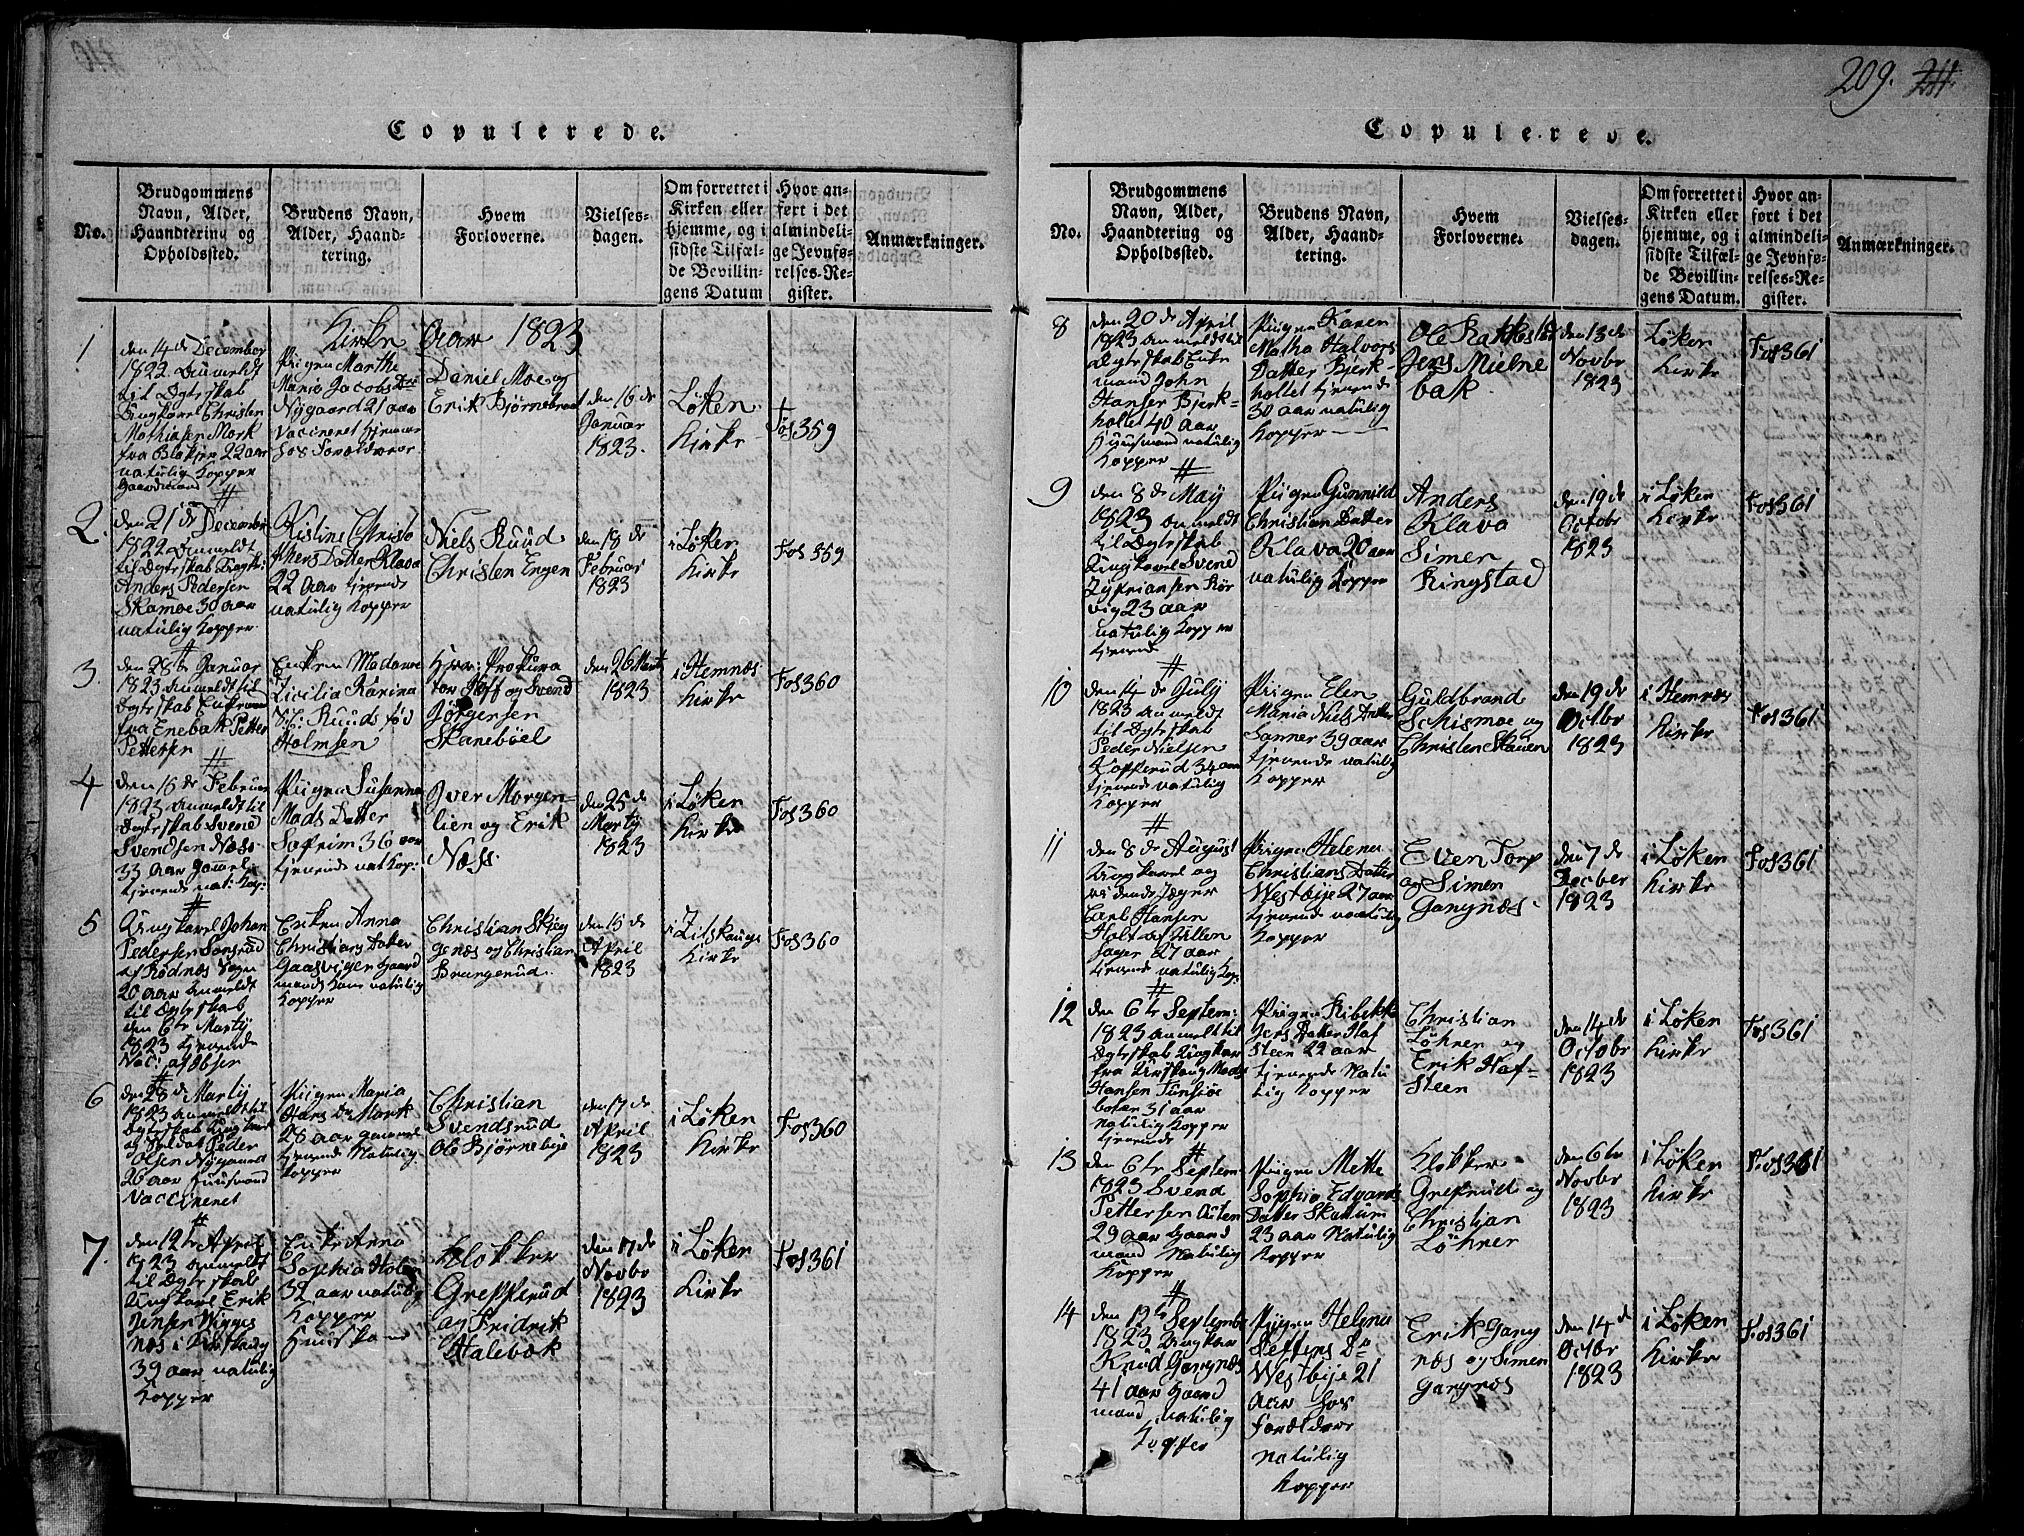 209. 211.
Copulerede.
No.
Brudgommens
Navn, Alder,
Haandtering og
Opholdssted.
Brudens Navn,
Alder, Haand-
tering.
Hvem
Forloverne.
Vielses-
dagen.
Om forrettet i
Kirken eller
hjemme, og i
sidste Tilfæl-
de Bevillin-
gens Datum
Hvor an-
ført i det
almindeli-
ge Jevnfø-
relses-Re-
gister.
Anmærkninger.
Kirke Aar 1823
1
den 14de December
1822 Anmeldt
til Ægteskab
Ungkarl Christen
Mathiasen Mork
fra Blakjer 22 aar
natulig Kopper
Gaardmand
Pigen Marthe
Maria Jacobs Dtr
Nygaard 21 aar
Vaccineret hjemme
hos Forældrene
Daniel Moe og
Erik Bjørnebraat
den 16de
Januar
1823.
Løken
Kirke
Fol 359
2.
den 21de December
1822 Anmeldt
til Ægteskab Ungk:
Anders Pedersen
Skamoe 30 aar
natulig Kopper
Kistine Christo
phers Datter Klava
22 Aar tjenende
natulig Kopper
Niels Ruud
Christen Engen
den 18de
Februar
1823
i Løken
Kirke
Fol 359
3.
den 28de Januar
1823 Anmeldt til
Ægteskab Enkemand
fra Enebak Petter
Pettersen
Enken Madame
Cicilia Karina
Ruuds fød
Holmsen
Herr: Prokura
tor Hoff og Svend
Jörgensen
Skaneböel
den 26 Marts
1823
i Hemnæs
Kirke
Fol 360
4
den 16de Februar
1823 Anmeldt til
Ægteskab Svend
Svendsen Næss
33 Aar gammel
tjenende nat: Kop:
Pigen Susanna
Mads Datter
Sofrim 36 aar
tjenende nat Kop:
Iver Morgen-
lien og Erik
Næss
den 25de
Marty
1823
i Løken
Kirke
Fol 360
5
Ungkarl Johan
Pedersen Sangrud
af Rødnæs Sogn
20 aar Anmeldt
til Ægteskab
den 6te Marty
1823 tjenende
Enken Anna
Christians Datter
Gaasvigen Gaard
mands Kone natulig
Kopper
Christian Skjeg
genæs og Christian
Brangerud
den 15de
April
1823
i Zitskauge
Kirke
Fol 360
6
den 28de Marty
1823 Anmeldt til
Ægteskab Ungkarl
og Soldat Peder
Olsen Nygaard
26 aar Huusmand
Vaccineret
Pigen Maria
Hans Dr Mork
28 aar gammel
tjenende Natulig
Kopper
Christian
Svendsrud
Ole Bjørnebye
den 17de
April
1823
i Løken
Kirke
Fol 360
7.
den 12te April
1823 Anmeldt
til Ægteskab
Ungkarl Erik
Jensen Vigges
næs i Urskoug
39 aar natulig
Kopper
Enke Anna
Sophia Holm
32 aar natulig
Kopper
Klokker
Grepperud
og Fridrik
Halebæk
den 17de
Novbr
1823
i Løken
Kirke
Fol 361
Copulerede.
No.
Brudgommens
Navn, Alder,
Haandtering og
Opholdssted.
Brudens Navn,
Alder, Haand-
tering.
Hvem
Forloverne.
Vielses-
dagen.
Om forrettet i
Kirken eller
hjemme, og i
sidste Tilfæl-
de Bevillin-
gens Datum.
Hvor an-
ført i det
almindeli-
ge Jevnfø-
relses-Re-
gister.
Anmærkninger.
8
den 20de April
1823 Anmeldt til
Ægteskab Enke
mand John
Hansen Bjerk-
holtet 40 aar
Huusmand natulig
Kopper
Pigen Karen
Matha Halvors
Datter Bjerk-
holtet tjenende
30 aar natulig
Kopper
Ole Rakkestad
Jens Mielne
bak
den 13de
Novbr
1823
Løken
Kirke
Fol 361
9
den 8de May
1823 Anmeldt
til Ægteskab
Ungkarl Svend
Zypriansen Kør
vig 23 aar
natulig Kopper
tjenende
Pigen Gunnild
Christian Datter
Klava 20 aar
natulig Kopper
Anders
Klava
Simen
Ringstad
den 19de
Octobr
1823
i Løken
Kirke
Fol 361
10
den 14de July
1823 Anmeldt
til Ægteskab
Peder Nielsen
Kopperud 34 aar
tjenende natulig
Kopper
Pigen Elen
Maria Niels Datter
Sanner 39 aar
tjenende natulig
Kopper
Guldbrand
Schismoe og
Christen Skauen
den 19de
Octbr
1823
i Hemnæs
Kirke
Fol 361
11
den 8de August
Ungkarl og
ridende Jæger
Carl Hansen
Holt af Jallen
Jager 27 aar
tjenende natulig Kop:
Pigen Helena
Christians Datter
Westbye 27 aar
tjenende natulig
Kopper
Even Torp
og Simen
Gangnæs
den 7de
Decber
1823
i Løken
Kirke
Fol 361
12
den 6te Septem:
1823 Anmeldt til
Ægteskab Ungkarl
fra Urskoug Mads
Hansen Tunsjøe
botten 31 aar
natulig Kopper
tjenende
Pigen Ribekka
Jens Datter Haf
steen 22 aar
tjenende Natu
lig Kopper
Christian
Löhner og
Erik Haf-
steen
den 14de
Octobr
1823
i Løken
Kirke
Fol 361
13
den 6te Septem
1823 Svend
Pettersen Auten
29 aar Gaard
mand Natulig
Kopper
Pigen Mette
Sophia Edvard
Datter Skattum
23 aar Natulig
Kopper
Klokker
Grepperud og
Christian
Löhner
den 6te
Novbr
1823
i Løken
Kirke
Fol 361
14
den 12te Septembr
1823 Ungkarl
Knud Gangnæs
41 aar Gaard
mand, natulig
Kopper
Pigen Helena
Steffens Dr
Westbye 21
aar hos
Forældrene
Natulig
Kopper
Erik Gang
næs og Simen
Gangnæs
den 14de
Octbr
1823
i Løken
Kirke
Fol 361